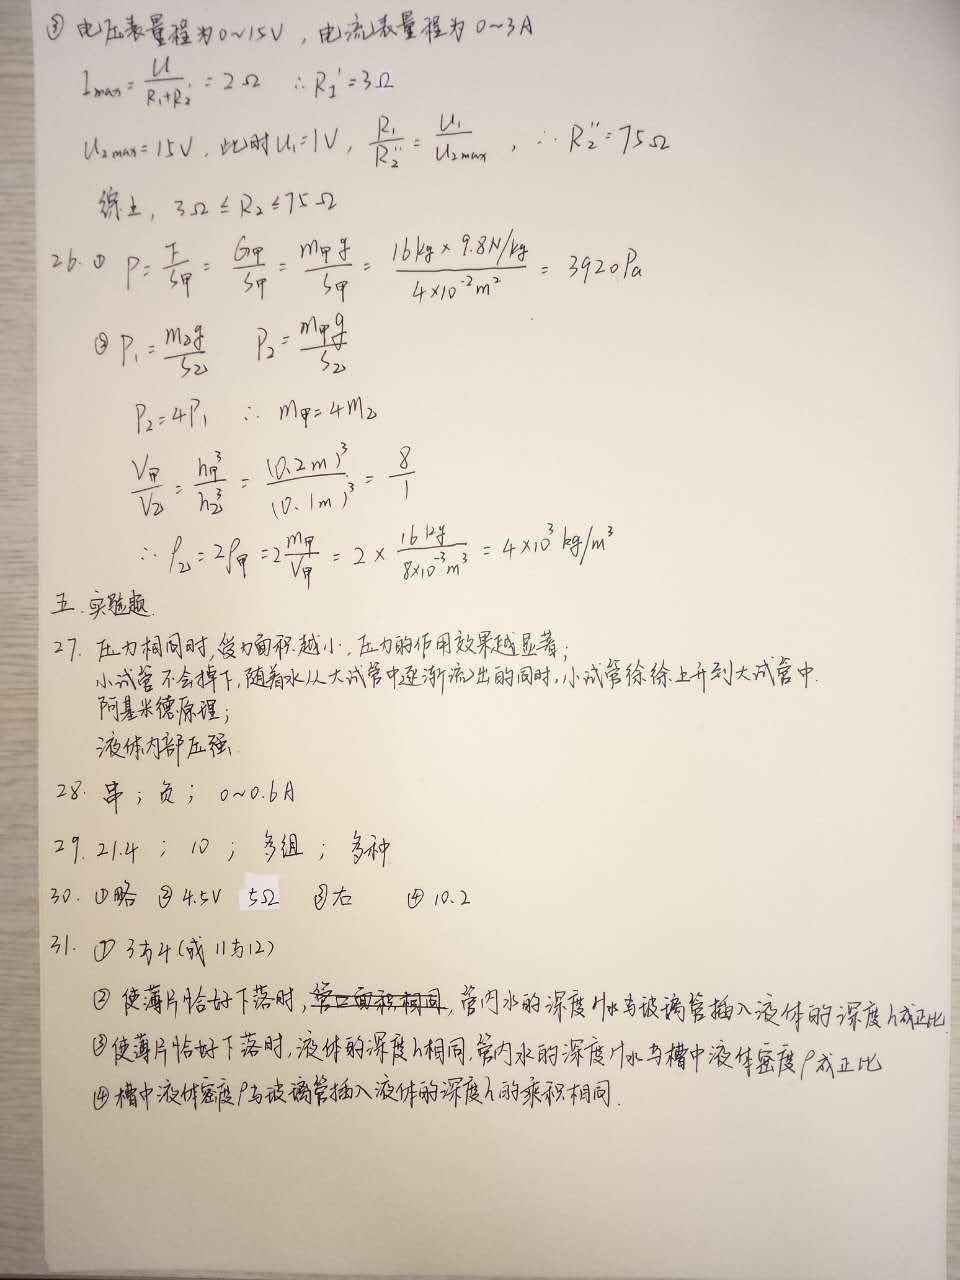 ③ 电压表量程为0~15V，电流表量程为0~3A
Imax = U/(R₁+R₂') = 2Ω ∴ R₂' = 3Ω
U₂max = 15V，此时U₁=1V，R₁/R₂'' = U₁/U₂max，∴ R₂'' = 75Ω
综上，3Ω ≤ R₂ ≤ 75Ω
26. ① P = F/S甲 = G甲/S甲 = m甲g/S甲 = (16kg × 9.8N/kg)/(4×10⁻²m²) = 3920Pa
② P₁ = m乙g/S乙 P₂ = m甲g/S乙
P₂=4P₁ ∴ m甲=4m乙
V甲/V乙 = h甲³/h乙³ = (0.2m)³/(0.1m)³ = 8/1
∴ ρ乙 = 2ρ甲 = 2 m甲/V甲 = 2 × 16kg/(8×10⁻³m³) = 4×10³kg/m³
五. 实验题.
27. 压力相同时,受力面积越小,压力的作用效果越显著；
小试管不会掉下,随着水从大试管中逐渐流出的同时,小试管徐徐上升到大试管中.
阿基米德原理；
液体内部压强.
28. 串；负；0~0.6A
29. 21.4；10；多组；多种
30. ①略 ②4.5V 5Ω ③右 ④10.2
31. ① 3与4(或11与12)
② 使薄片恰好下落时,管口面积相同,管内水的深度H水与玻璃管插入液体的深度h成正比
③ 使薄片恰好下落时,液体的深度h相同,管内水的深度H水与槽中液体密度ρ成正比
④ 槽中液体密度ρ与玻璃管插入液体的深度h的乘积相同.